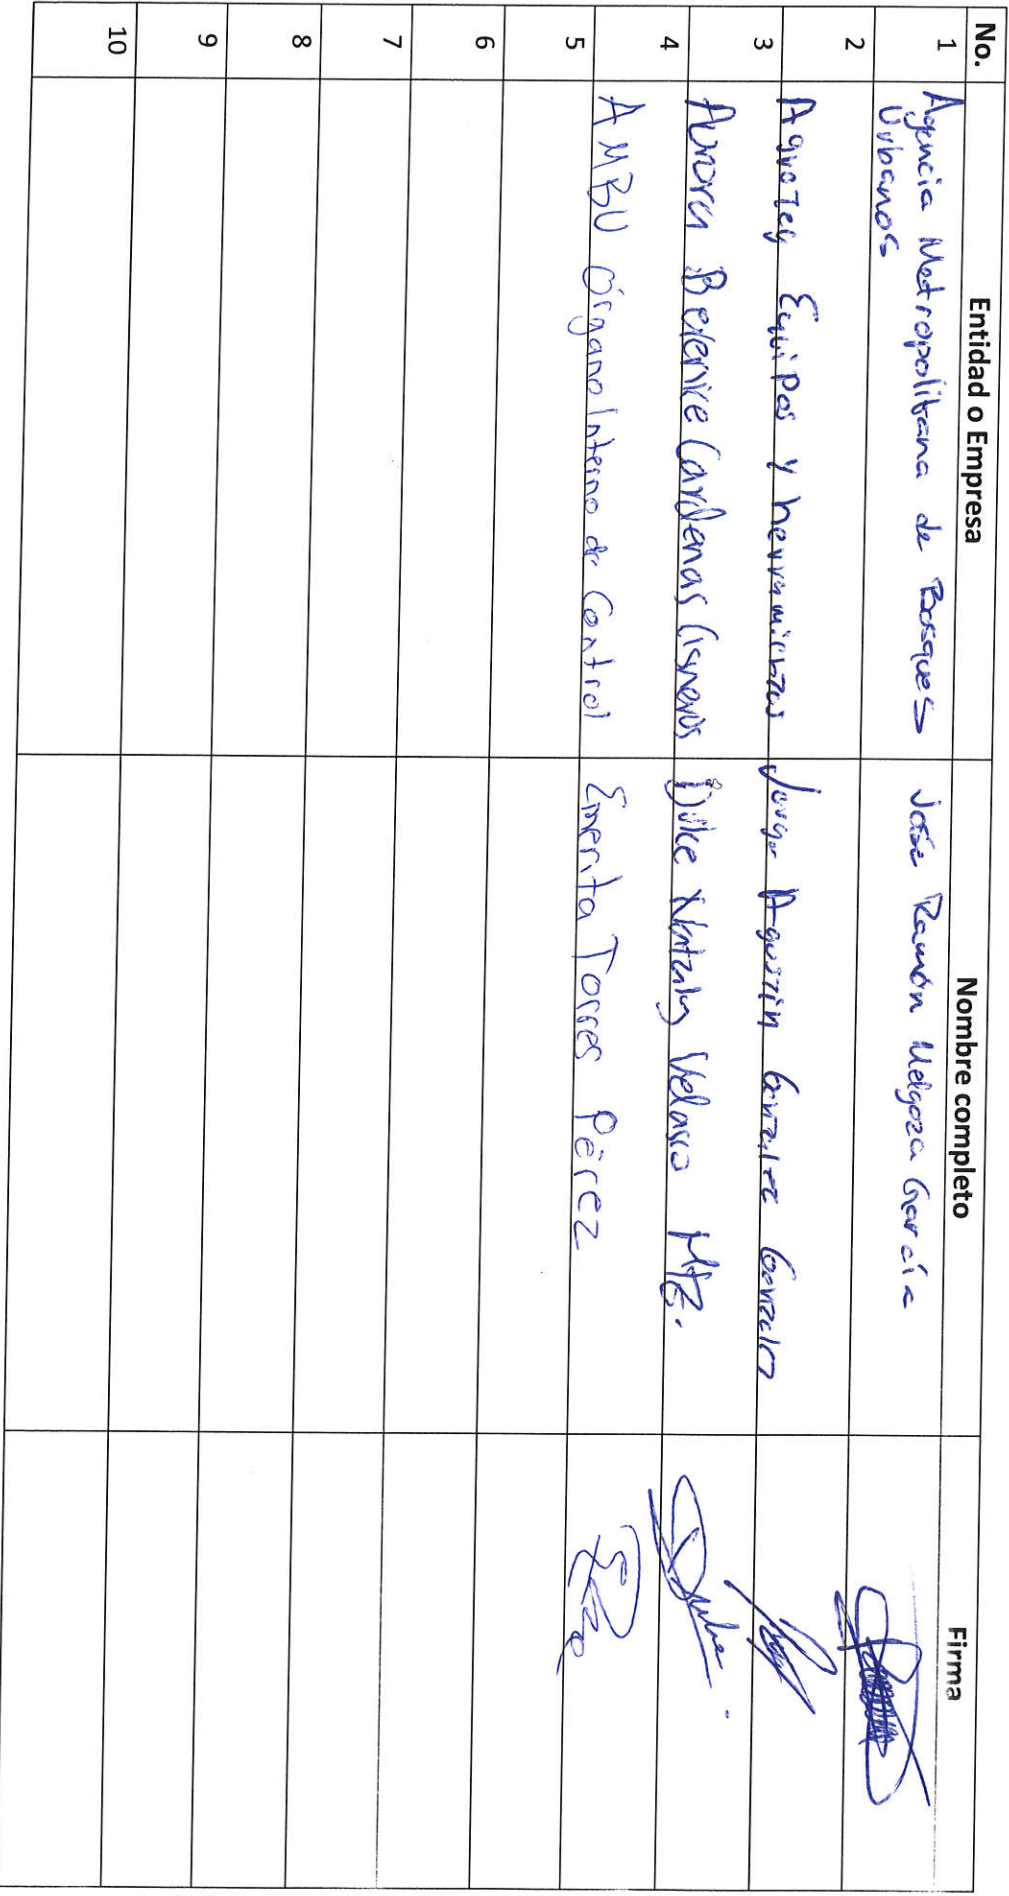 No. Entidad o Empresa Nombre completo Firma
1 Agencia Metropolitana de Bosques José Ramón Melgoza García
Urbanos
2
3 Equipos y herramientas Jorge Agustin
4 Aurora Berenice Cardenas Cisneros Dulce Nataly Velasco Mtz.
5 AMBU Órgano Interno de Control Emerita Torres Pérez
6
7
8
9
10